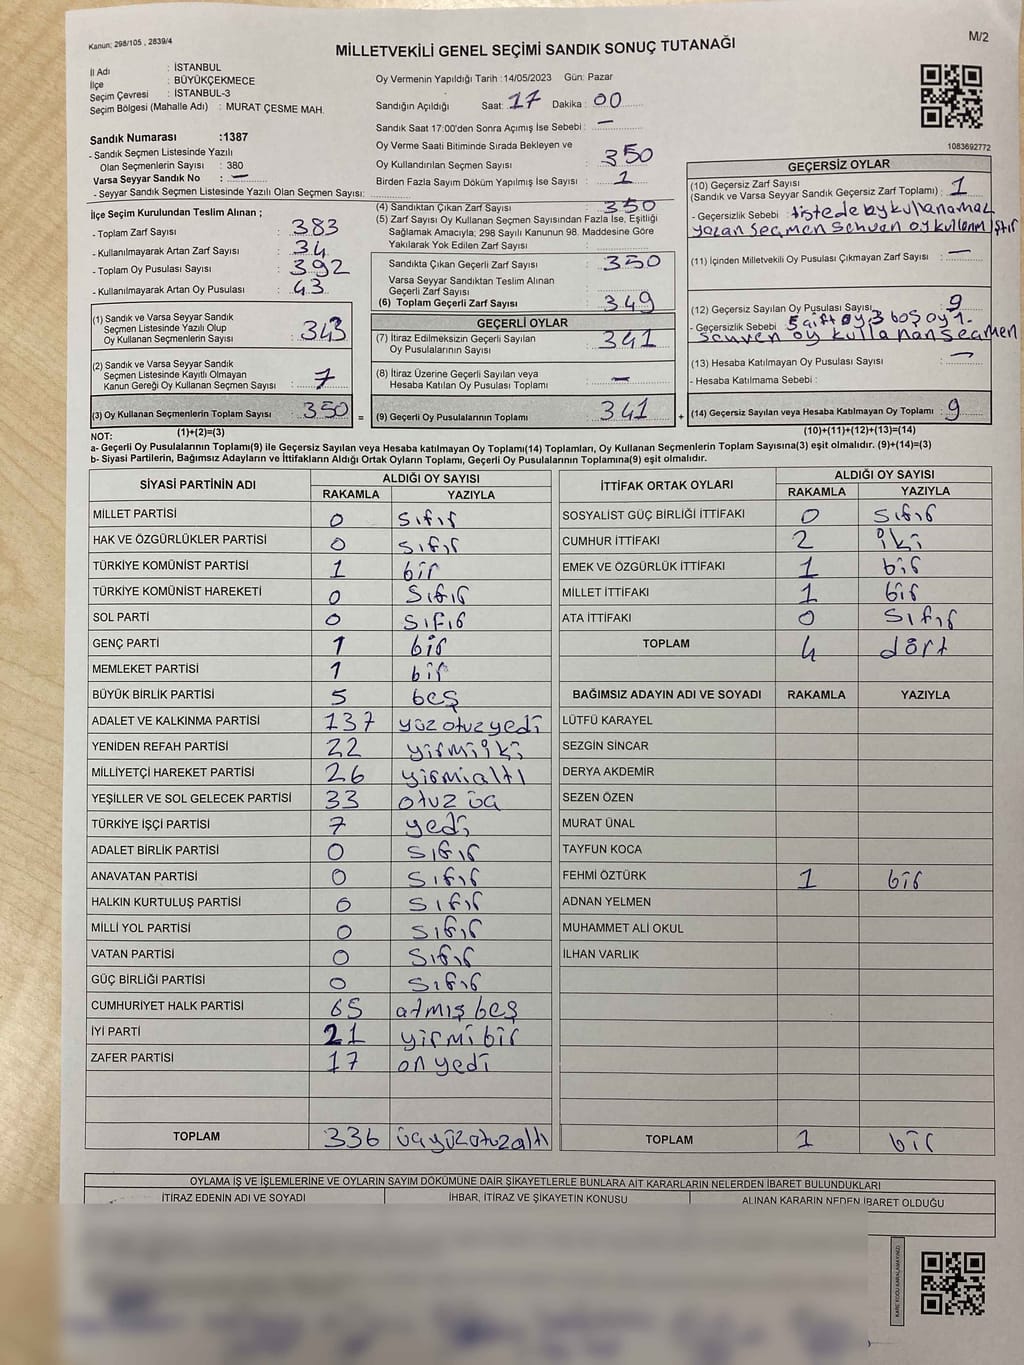 Kanun; 298/105 , 2839/4
MİLLETVEKİLİ GENEL SEÇİMİ SANDIK SONUÇ TUTANAĞI
M/2
İl Adı : İSTANBUL
İlçe : BÜYÜKÇEKMECE
Seçim Çevresi : İSTANBUL-3
Seçim Bölgesi (Mahalle Adı) : MURAT ÇESME MAH.
Sandık Numarası :1387
- Sandık Seçmen Listesinde Yazılı
Olan Seçmenlerin Sayısı : 380
Varsa Seyyar Sandık No : —
- Seyyar Sandık Seçmen Listesinde Yazılı Olan Seçmen Sayısı:
İlçe Seçim Kurulundan Teslim Alınan ;
- Toplam Zarf Sayısı : 383
- Kullanılmayarak Artan Zarf Sayısı : 34
- Toplam Oy Pusulası Sayısı : 392
- Kullanılmayarak Artan Oy Pusulası : 43
(1) Sandık ve Varsa Seyyar Sandık
Seçmen Listesinde Yazılı Olup
Oy Kullanan Seçmenlerin Sayısı : 343
(2) Sandık ve Varsa Seyyar Sandık
Seçmen Listesinde Kayıtlı Olmayan
Kanun Gereği Oy Kullanan Seçmen Sayısı : 7
(3) Oy Kullanan Seçmenlerin Toplam Sayısı : 350 =
(1)+(2)=(3)
Oy Vermenin Yapıldığı Tarih :14/05/2023 Gün: Pazar
Sandığın Açıldığı Saat: 17 Dakika : 00
Sandık Saat 17:00'den Sonra Açımış İse Sebebi : —
Oy Verme Saati Bitiminde Sırada Bekleyen ve
Oy Kullandırılan Seçmen Sayısı : 350
Birden Fazla Sayım Döküm Yapılmış İse Sayısı : 1
(4) Sandıktan Çıkan Zarf Sayısı : 350
(5) Zarf Sayısı Oy Kullanan Seçmen Sayısından Fazla İse, Eşitliği
Sağlamak Amacıyla; 298 Sayılı Kanunun 98. Maddesine Göre
Yakılarak Yok Edilen Zarf Sayısı :
Sandıkta Çıkan Geçerli Zarf Sayısı : 350
Varsa Seyyar Sandıktan Teslim Alınan
Geçerli Zarf Sayısı :
(6) Toplam Geçerli Zarf Sayısı : 349
GEÇERLİ OYLAR
(7) İtiraz Edilmeksizin Geçerli Sayılan
Oy Pusulalarının Sayısı : 341
(8) İtiraz Üzerine Geçerli Sayılan veya
Hesaba Katılan Oy Pusulası Toplamı : —
(9) Geçerli Oy Pusulalarının Toplamı : 341 +
1083692772
GEÇERSİZ OYLAR
(10) Geçersiz Zarf Sayısı
(Sandık ve Varsa Seyyar Sandık Geçersiz Zarf Toplamı) : 1
- Geçersizlik Sebebi : listede oy kullanamaz
yazan seçmen sehven oy kullanmıştır
(11) İçinden Milletvekili Oy Pusulası Çıkmayan Zarf Sayısı : —
(12) Geçersiz Sayılan Oy Pusulası Sayısı : 9
- Geçersizlik Sebebi 5 çift oy, 3 boş oy 1-
sehven oy kullanan seçmen
(13) Hesaba Katılmayan Oy Pusulası Sayısı : —
- Hesaba Katılmama Sebebi :
(14) Geçersiz Sayılan veya Hesaba Katılmayan Oy Toplamı : 9
(10)+(11)+(12)+(13)=(14)
NOT:
a- Geçerli Oy Pusulalarının Toplamı(9) ile Geçersiz Sayılan veya Hesaba katılmayan Oy Toplamı(14) Toplamları, Oy Kullanan Seçmenlerin Toplam Sayısına(3) eşit olmalıdır. (9)+(14)=(3)
b- Siyasi Partilerin, Bağımsız Adayların ve İttifakların Aldığı Ortak Oyların Toplamı, Geçerli Oy Pusulalarının Toplamına(9) eşit olmalıdır.
SİYASİ PARTİNİN ADI ALDIĞI OY SAYISI
RAKAMLA YAZIYLA
MİLLET PARTİSİ 0 sıfır
HAK VE ÖZGÜRLÜKLER PARTİSİ 0 sıfır
TÜRKİYE KOMÜNİST PARTİSİ 1 bir
TÜRKİYE KOMÜNİST HAREKETİ 0 sıfır
SOL PARTİ 0 sıfır
GENÇ PARTİ 1 bir
MEMLEKET PARTİSİ 1 bir
BÜYÜK BİRLİK PARTİSİ 5 beş
ADALET VE KALKINMA PARTİSİ 137 yüz otuz yedi
YENİDEN REFAH PARTİSİ 22 yirmi iki
MİLLİYETÇİ HAREKET PARTİSİ 26 yirmialtı
YEŞİLLER VE SOL GELECEK PARTİSİ 33 otuz üç
TÜRKİYE İŞÇİ PARTİSİ 7 yedi
ADALET BİRLİK PARTİSİ 0 sıfır
ANAVATAN PARTİSİ 0 sıfır
HALKIN KURTULUŞ PARTİSİ 0 sıfır
MİLLİ YOL PARTİSİ 0 sıfır
VATAN PARTİSİ 0 sıfır
GÜÇ BİRLİĞİ PARTİSİ 0 sıfır
CUMHURİYET HALK PARTİSİ 65 atmış beş
İYİ PARTİ 21 yirmi bir
ZAFER PARTİSİ 17 on yedi
TOPLAM 336 üçyüzotuzaltı
İTTİFAK ORTAK OYLARI ALDIĞI OY SAYISI
RAKAMLA YAZIYLA
SOSYALİST GÜÇ BİRLİĞİ İTTİFAKI 0 sıfır
CUMHUR İTTİFAKI 2 iki
EMEK VE ÖZGÜRLÜK İTTİFAKI 1 bir
MİLLET İTTİFAKI 1 bir
ATA İTTİFAKI 0 sıfır
TOPLAM 4 dört
BAĞIMSIZ ADAYIN ADI VE SOYADI RAKAMLA YAZIYLA
LÜTFÜ KARAYEL
SEZGİN SİNCAR
DERYA AKDEMİR
SEZEN ÖZEN
MURAT ÜNAL
TAYFUN KOCA
FEHMİ ÖZTÜRK 1 bir
ADNAN YELMEN
MUHAMMET ALİ OKUL
İLHAN VARLIK
TOPLAM 1 bir
OYLAMA İŞ VE İŞLEMLERİNE VE OYLARIN SAYIM DÖKÜMÜNE DAİR ŞİKAYETLERLE BUNLARA AİT KARARLARIN NELERDEN İBARET BULUNDUKLARI
İTİRAZ EDENİN ADI VE SOYADI İHBAR, İTİRAZ VE ŞİKAYETİN KONUSU ALINAN KARARIN NEDEN İBARET OLDUĞU
KAREKODU KARALAMAYINIZ!